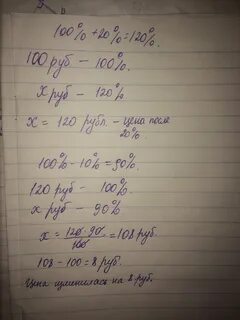 100% + 20% = 120%
100 руб - 100%.
х руб - 120%
х = 120 рубл. - цена после
20%.
100% - 10% = 90%
120 руб - 100%.
х руб - 90%
х = 120 · 90 / 100 = 108 руб.
108 - 100 = 8 руб.
Цена изменилась на 8 руб.